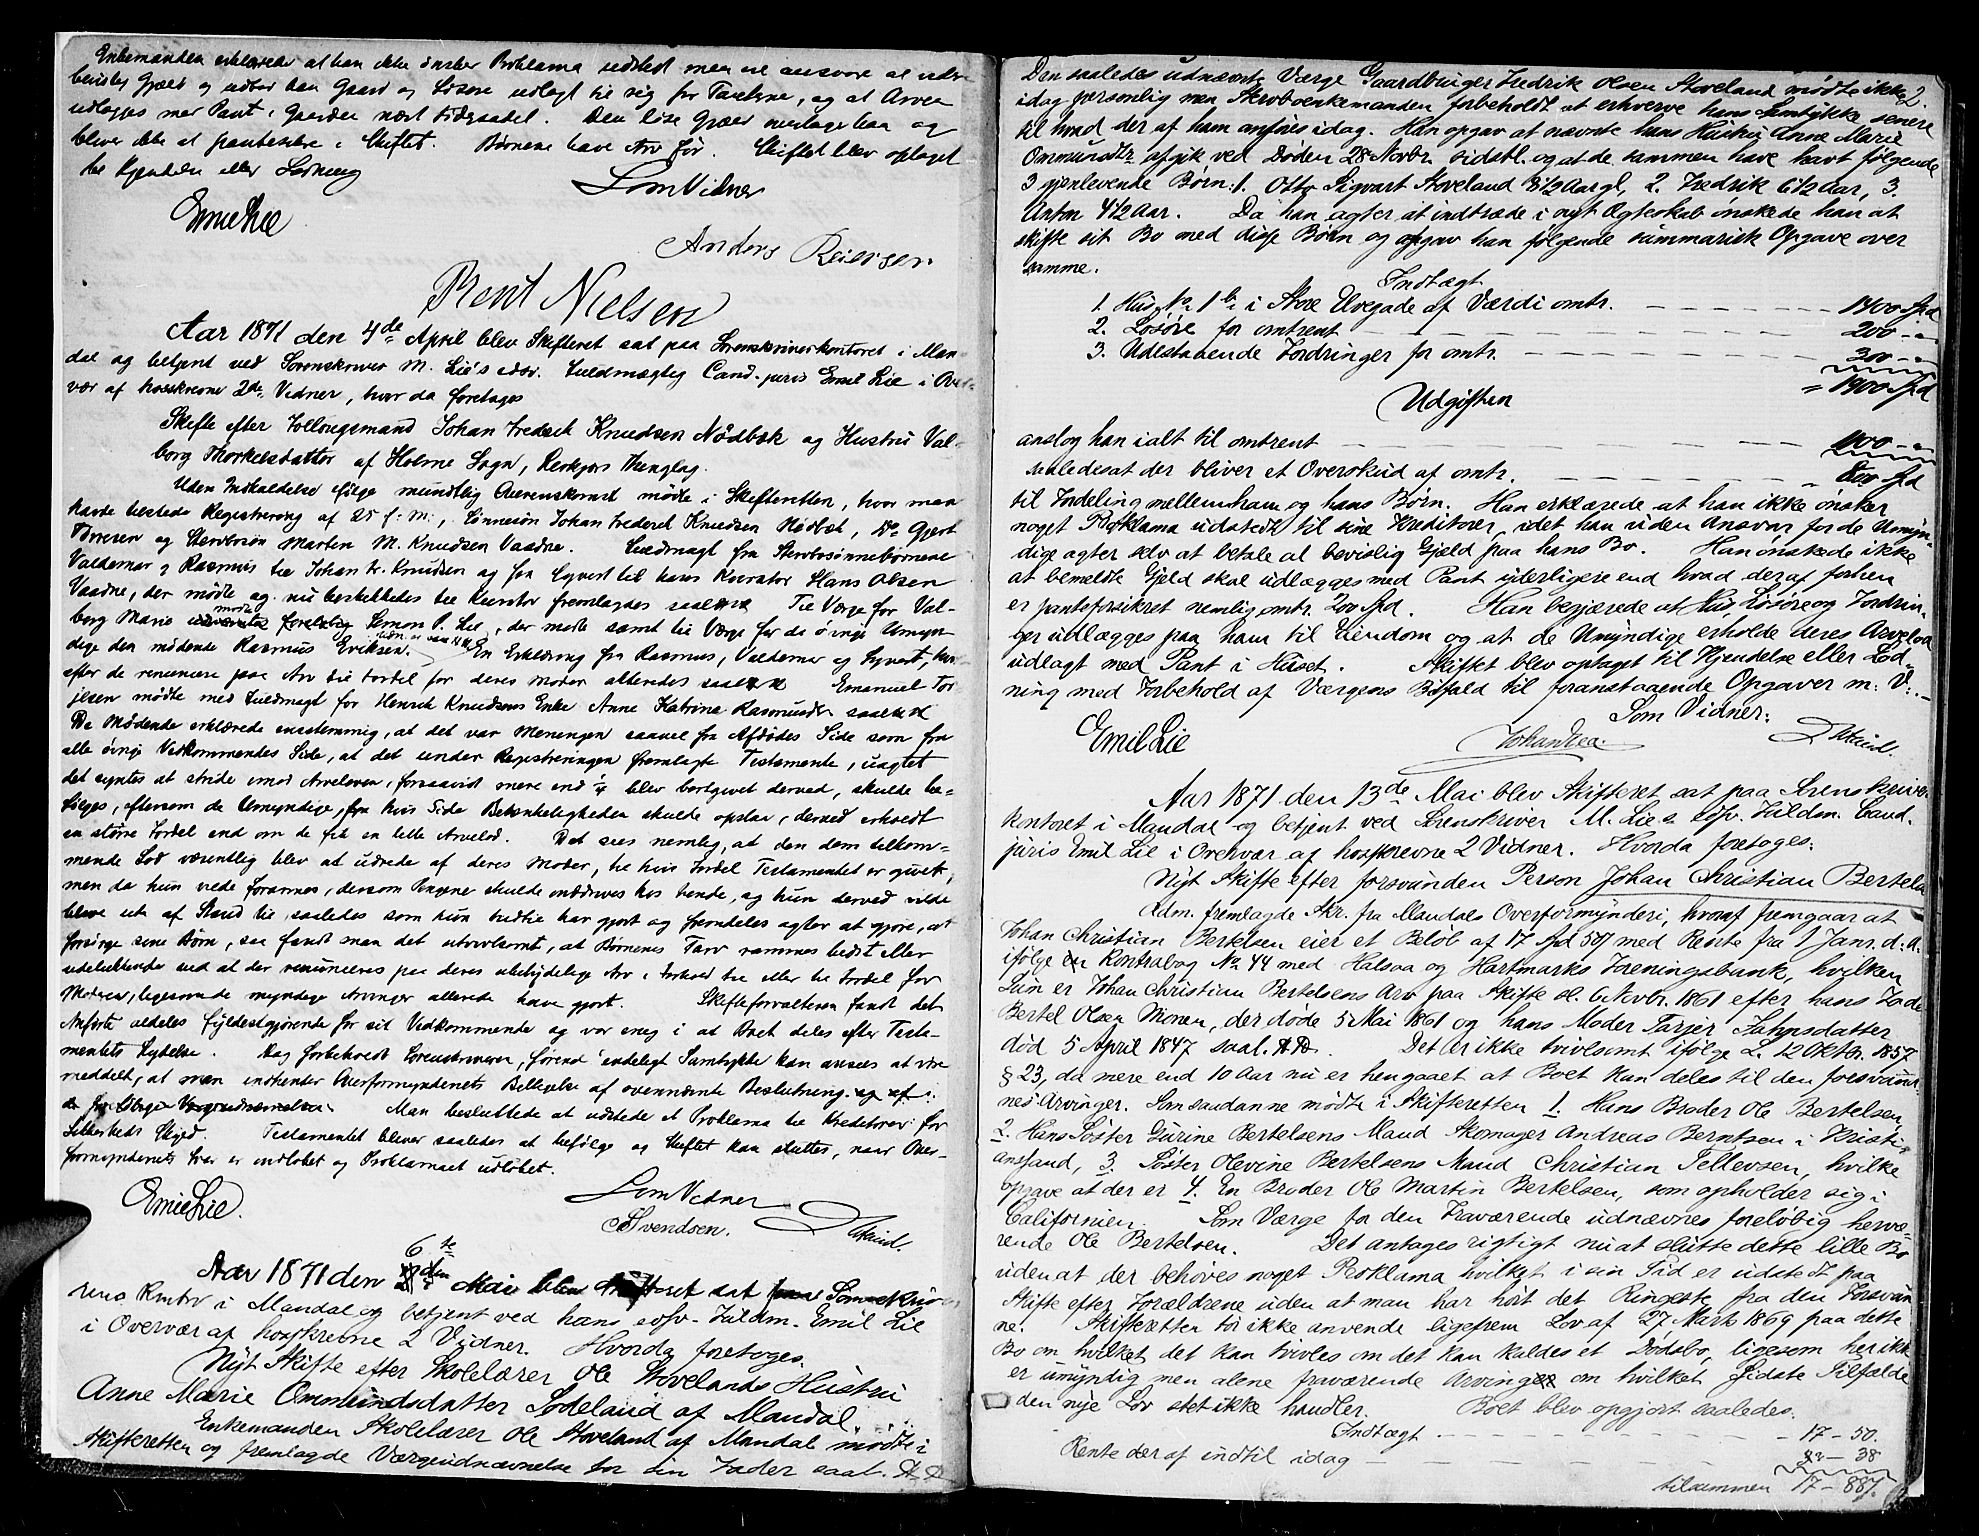 Enkemanden erklærede at han ikke ønsker Proklama udstedt men vil ansvare al udv
bevislig Gjæld og udbad han Gaard og Løsøre udlagt til sig for Taxterne, og at Arven
udlægges med Pant i Gaarden næst tidssadel. Den lille Gjæld overtager han og
bliver ikke at paaberåbe i Skiftet. Børnene have Arv før. Skiftet blev optaget
til Kjendelse eller Lodning
Som Vidner
Emil Lie
Anders Reiersen.
Bent Nielsen
Aar 1871 den 4de April blev Skifteret sat paa Sorenskriverkontoret i Man-
dal og betjent ved Sorenskriver M. Lie's edsv. Fuldmægtig Cand. juris Emil Lie i Over-
vær af hosskrevne 2de Vidner, hvor da foretoges
Skifte efter Follougsmand Johan Fredrik Knudsen Nødbæk og Hustru Val-
borg Thorkelsdatter af Holme Sogn, Thinglag.
Uden Indkaldelse ifølge mundtlig Overenskomst mødte i Skifteretten, hvor man
havde bestede Registrering af 25 f: M:, Sønnesøn Johan Frederik Knudsen Nødbæk, Do Gjert
og Stervbosøn Marten M. Knudsen Vaadne. Fuldmagt fra Stervbosønnebørnene
Valdemar og Rasmus til Johan Fr. Knudsen og fra Syvert til hans Kurator Hans Olsen
Vaadne, der mødte og nu beskikkedes til Kurator fremlagdes saal. Til Værge for Val-
borg Marie mødte Simon P. Lie, der mødte samt til Værge for de øvrige Umyn-
dige den mødende Rasmus Eriksen. En Erklæring fra Rasmus, Valdemar og Syvert, hvor
efter de renuncere paa Arv til Fordel for deres Moder allerede saal. Emanuel Tor-
jesen mødte med Fuldmagt for Henrik Knudsens Enke Anne Katrine Rasmusdtr saal.
De Mødende erklærede eenstemmig, at det var Meningen saavel fra Afdødes Side som fra
alle øvrige Vedkommendes Side, at det under Registreringen fremlagte Testamente, uagtet
det syntes at stride imod Arveloven, forsaavidt mere end ¼ blev bortgivet derved, skulde be-
følges, eftersom de Umyndige, fra hvis Side Betænkeligheden skulde opstaa, derved erholdt
en større Fordel end om de fik en lille Arvelod. Det sees nemlig, at den dem tilkom-
mende Lod væsentlig blev at udrede af deres Moder, til hvis Fordel Testamentet er givet,
men da hun vilde forarmes, dersom Pengene skulde inddrives hos hende, og hun derved vilde
blive ude af Stand til, saaledes som hun hidtil har gjort og fremdeles agter at gjøre, at
forsørge sine Børn, saa fandt man det utvivlsomt, at Børnenes Tarv rammes bedst eller
udelukkende ved at der renunceres paa deres ubetydelige Arv i Forhold til eller til Fordel for
Moderen, ligesom de myndige Arvinger allerede have gjort. Skifteforvalteren fandt det
Anførte aldeles fyldestgjørende for sit Vedkommende og var enig i at Boet deles efter Testa-
mentets Lydelse. Dog forbeholdt Sorenskriveren, førend endeligt Samtykke kan ansees at være
meddelt, at man indhenter Overformynderiets Billigelse af ovennævnte Beslutning
Man besluttede at udstede et Proklama til Kreditorer for
Sikkerheds Skyld. Testamentet bliver saaledes at befølge og Skiftet kan sluttes, naar Over-
formynderiets Svar er indløbet og Proklamaet udløbet.
Emil Lie.
Som Vidner
Svendsen.
Aar 1871 den 6te Mai blev Skifteret sat Sorenskrive-
rens Kontor i Mandal og betjent ved hans edsv. Fuldm. Emil Lie
i Overvær af hosskrevne 2 Vidner. Hvorda foretoges.
Nyt Skifte efter Skolelærer Ole Stovelands Hustru
Anne Marie Ommundsdatter Sødeland af Mandal.
Enkemanden Skolelærer Ole Stoveland af Mandal mødte i
Skifteretten og fremlagde Værgeudnævnelse for sin Fader saal.
2.
Den saaledes udnævnte Værge Gaardbruger Fredrik Olsen Stoveland mødte ikke
idag personlig men Stervboenkemanden forbeholdt at erhverve hans Samtykke senere
til hvad der af ham anføres idag. Han opgav at nævnte hans Hustru Anne Marie
Ommundtr. afgik ved Døden 28 Novbr. sidstl. og at de sammen have havt følgende
3 gjenlevende Børn: 1. Otto Sigvart Stoveland 8 1/2 Aar gl, 2. Fredrik 6 1/2 Aar, 3.
Anton 4 1/2 Aar. Da han agter at indtræde i nyt Ægteskab ønskede han at
skifte sit Bo med disse Børn og opgav han følgende summarisk Opgave over
samme.
Indtægt
1. Hus No 1 b i Store Elvegade af Værdi omtr. 1400 Spd
2. Løsøre for omtrent 200 –
3. Udestaaende Fordringer for omtr. 300 –
= 1900 Spd
Udgiften
anslog han ialt til omtrent 1100 –
saaledes at der bliver et Overskud af omtr. 800 Spd
til Fordeling mellem ham og hans Børn. Han erklærede at han ikke ønsker
noget Proklama udstedt til sine Kreditorer, idet han uden Ansvar for de Umyn-
dige agter selv at betale al bevislig Gjæld paa hans Bo. Han ønskede ikke
at bemeldte Gjeld skal udlægges med Pant yderligere end hvad deraf forhen
er panteforsikret nemlig omtr. 200 Spd. Han begjærede at Hus, Løsøre og Fordrin-
ger udlægges paa ham til Eiendom og at de Umyndige erholde deres Arvelod
udlagt med Pant i Huset. Skiftet blev optaget til Kjendelse eller Lod-
ning med Forbehold af Værgens Bifald til foranstaaende Opgaver m: V:
Som Vidner:
Emil Lie
Aar 1871 den 13de Mai blev Skifteret sat paa Sorenskriver
kontoret i Mandal og betjent ved Sorenskriver M. Lie's edsv. Fuldm. Cand.
juris Emil Lie i Overvær af hosskrevne 2 Vidner. Hvorda foretoges:
Nyt Skifte efter forsvunden Person Johan Christian Bertels
Adm. fremlagde Skr. fra Mandals Overformynderi, hvoraf fremgaar at
Johan Christian Bertelsen eier et Beløb af 17 Spd 50 med Rente fra 1 Janr. d. A.
ifølge Kontrabog No 44 med Halsaa og Hartmarks Foreningsbank, hvilken
Sum er Johan Christian Bertelsens Arv paa Skifte sl. 6 Novbr. 1861 efter hans Fader
Bertel Olsen Monen, der døde 5 Mai 1861 og hans Moder Tarjer Jahnsdatter
død 5 April 1847 saal. Det er ikke tvivlsomt ifølge L. 12 Oktbr. 1857
§ 23, da mere end 10 Aar nu er hengaaet at Boet kan deles til den forsvund-
nes Arvinger. Som saadanne mødte i Skifteretten 1. Hans Broder Ole Bertelsen
2. Hans Søster Gurine Bertelsens Mand Skomager Andreas Berntsen i Kristi-
ansand, 3. Søster Olevine Bertelsens Mand Christian Tellevsen, hvilke
opgave at der er 4. En Broder Ole Martin Bertelsen, som opholder sig i
Californien. Som Værge for den Fraværende udnævnes foreløbig hervæ-
rende Ole Bertelsen. Det antages rigtigt nu at slutte dette lille Bo
uden at der behøves noget Proklama hvilket i sin Tid er udstedt paa
Skifte efter Forældrene uden at man har hørt det Ringeste fra den Forsvun
ne. Skifteretten tør ikke anvende ligefrem Lov af 27 Marts 1869 paa dette
Bo om hvilket det kan tvivles om det kan kaldes et Dødsbo, ligesom her ikke
er umyndig men alene fraværende Arving om hvilket sidste Tilfælde
den nye Lov slet ikke handler. Boet blev opgjort saaledes.
Indtægt 17 – 50.
Rente deraf indtil idag – 38
tilsammen 17 – 88.